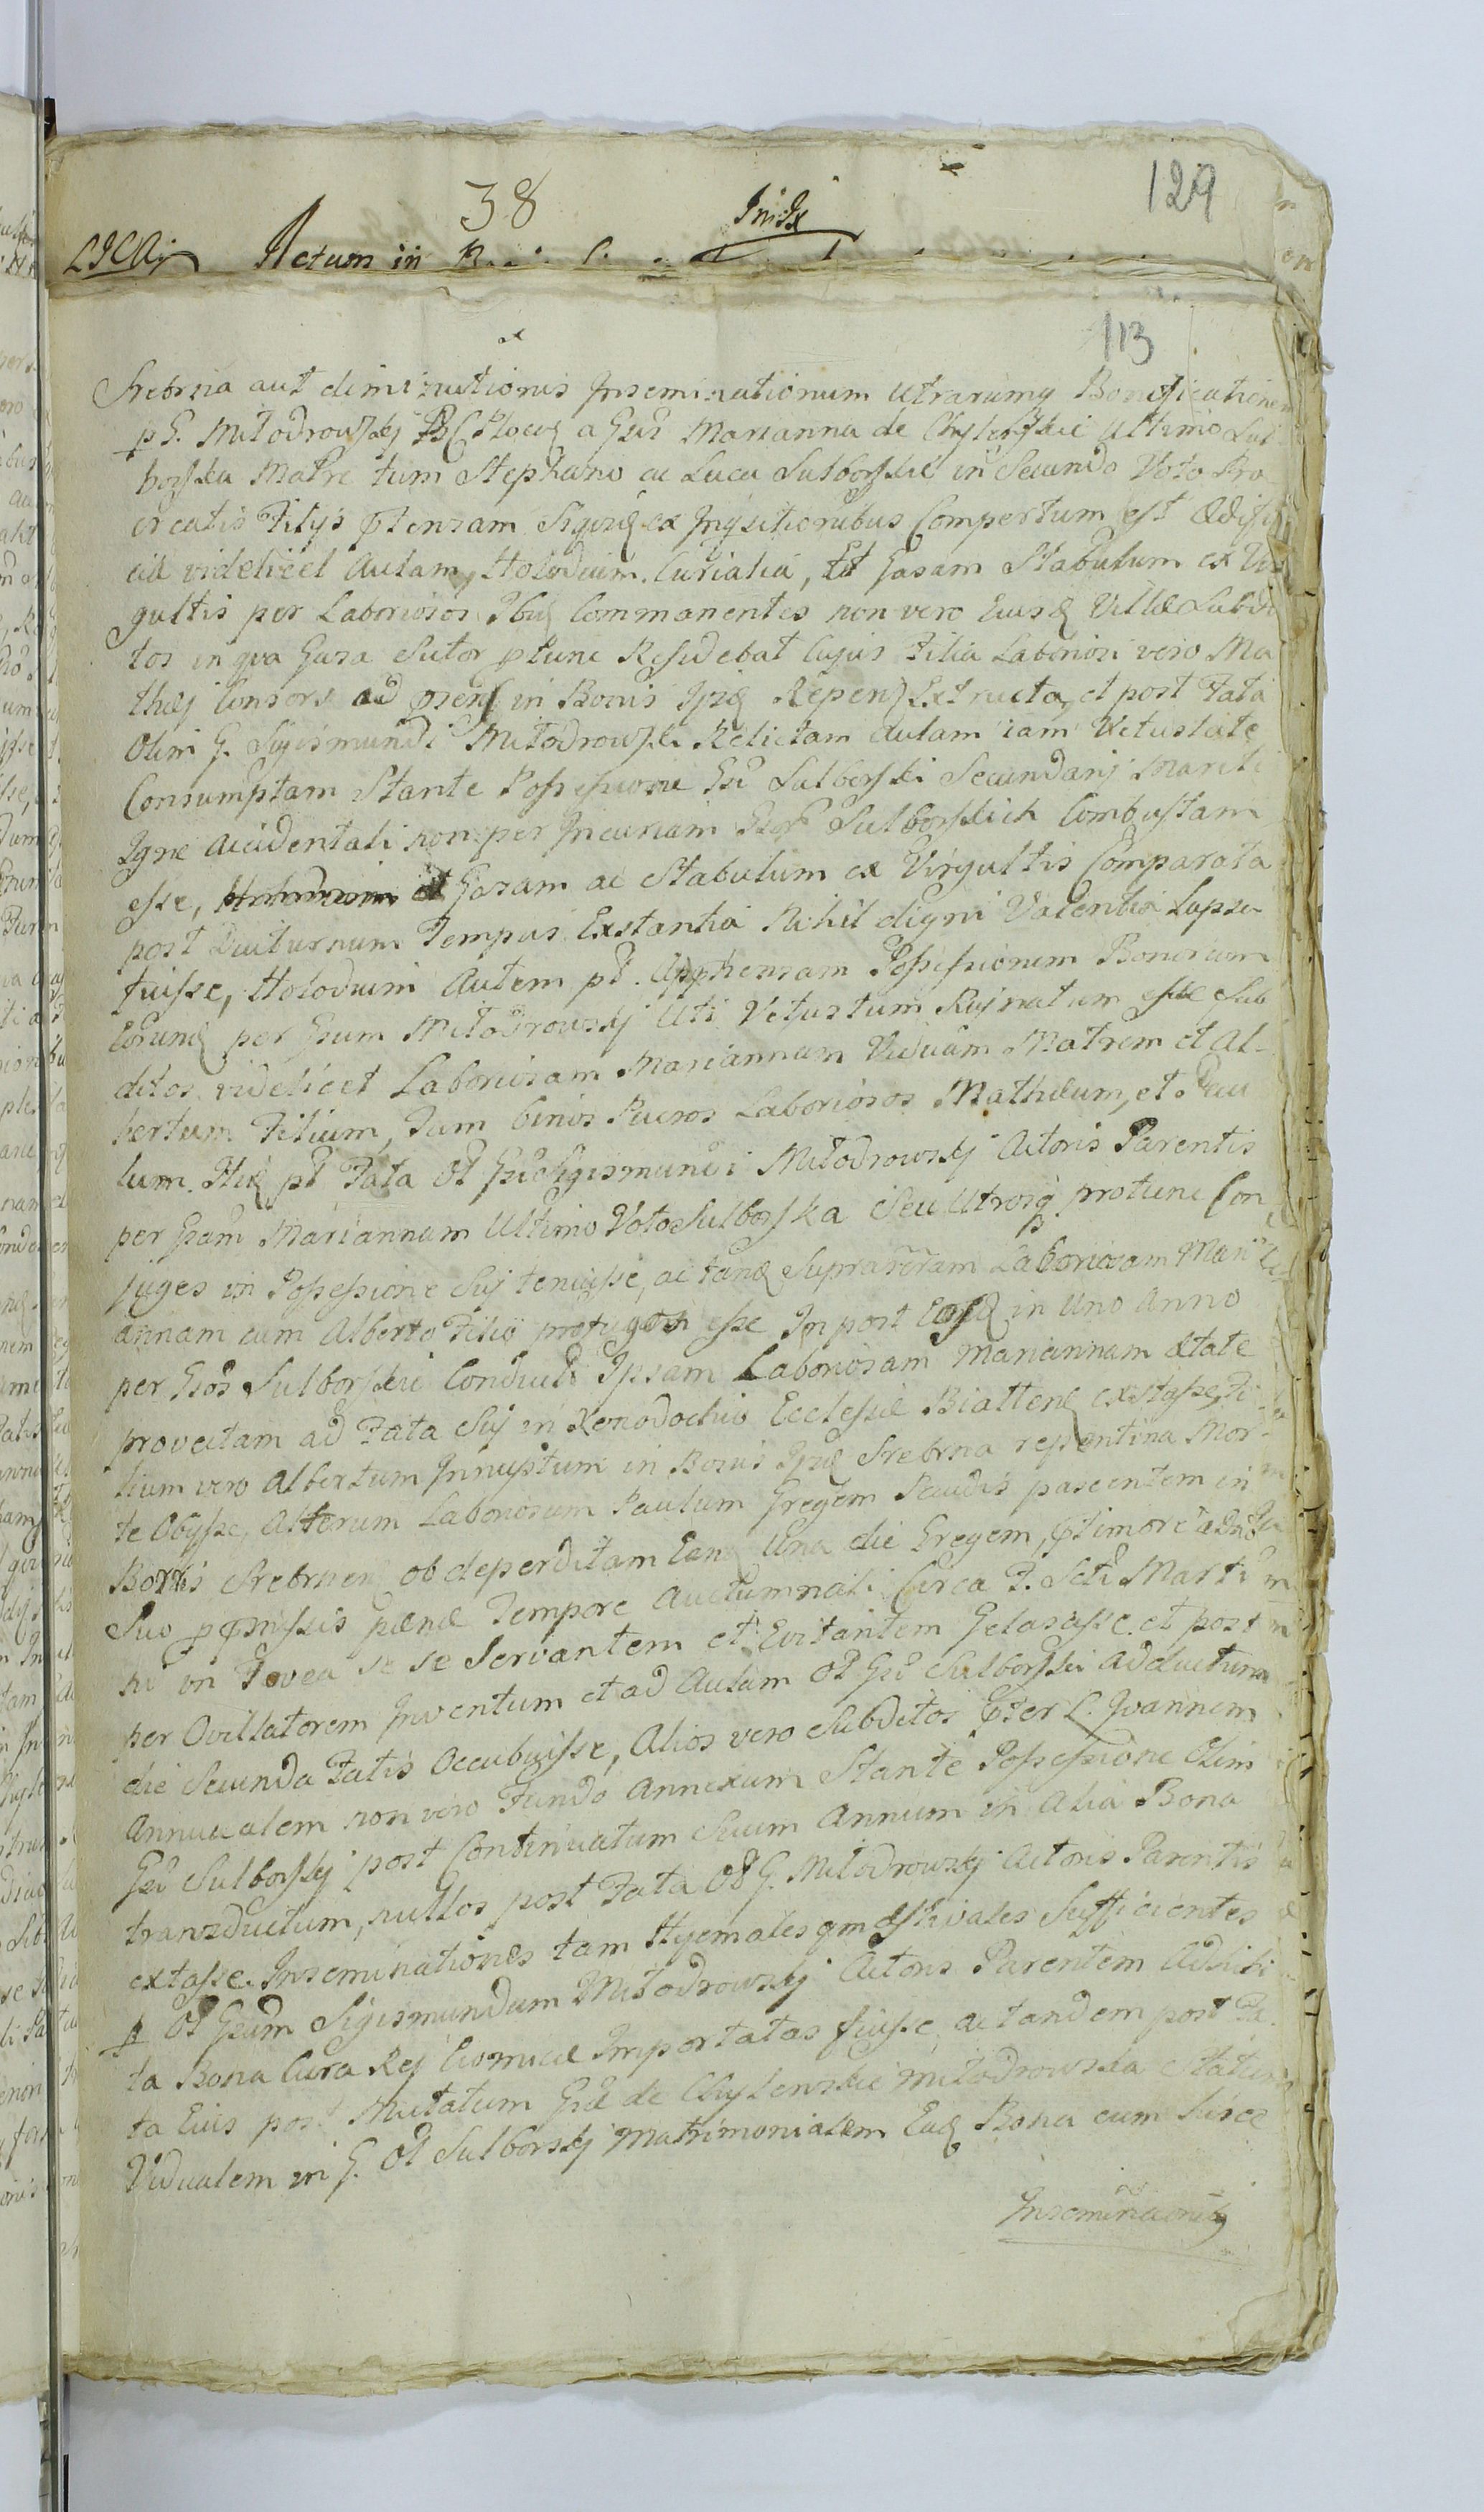 129
38
Actum in
113
Srebrna aut diminutionis Inseminationum Utrarumq Bonificationem
p G. Miłodrowskj a Gsa Marianna de Chylinskie Ultimo Sul
borska Matre tum Stephano ac Luca Sulborskie in Secundo Voto Pro
creatis Filijs ex Inqsitionibus Compertum est Ædifi
cia videlicet Aulam, Holoduim Curialia, Et Gasam Stabulum ex Vir
gultis per Laboriosos Ibiq Commanentes non vero Eiusq Villæ Subdi
tos in qva Gasa Sutor ptunc Residebat Cujus Filia Laboriosi vero Ma
thæj Consors ad in Bonis Extructa, et post Fata
Olim G. Sigismundi Miłodrowski Relictam Aulam iam Vetustate
Consumptam Stante Possessione Gsi Sulborski Secundarij Mariti
Igne Accidentali non per Incuriam Sulborskich Combustam
esse, Gasam ac Stabulum ex Virgultis Comparata
post Diuturnum Tempus Extantia Nihil digni Valentia Lapsa
fuisse, Holoduim Autem pt. Apphensam Possessionem Bonorum
Eorunq per Gsum Miłodrowskj Uti Vetustum Rujnatum esse Sub
ditos videlicet Laboriosam Mariannam Viduam Matrem et Al-
bertum Filium, Tum binos Pueros Laboriosos Mathæum, et Pau
lum. pt Fata Ol Gsi Sigismundi Miłodrowskj Actoris Parentis
per Gsam Mariannam Ultimo Voto Sulborska Seu Utrosq protunc Con
juges in Possessione Sui tenuisse, ac tanq Laboriosam Mari
annam cum Alberto Filio esse In post in Uno Anno
per Gsos Sulborskie Ipsam Laboriosam Mariannam Ætate
provectam ad Fata Sui in Xenodochio Ecclesiæ extasse, Fi
lium vero Albertum Innuptum in Bonis Srebrna repentina Mor
te Obijsse, Alterum Laboriosum Paulum Gregem Pecudis pascentem in
Bonis ob deperditam Eanq Una die Gregem,
Suo pænæ Tempore Auctumnali Circa F. Scti Marti
ni in Fovea se se Servantem et Evitantem Gelasasse et post
per Ovillatorem Inventum et ad Aulam Ol Gsi Sulborski Adductum
die Secunda Fatis Occubuisse, Alios vero Subditos L. Joannem
Annualem non vero Fundo Annexum Stante Possessione Olim
Gsi Sulborskj post Continuatum Suum Annum in Alia Bona
transductum, nullos post Fata Ol G. Miłodrowskj Actoris Parentis
extasse. Inseminationes tam Hyemales qm Æstivales Sufficientes
p Ol Gsum Sigismundum Miłodrowskj Actoris Parentem Ad
ta Bona Cura Rej Importatas fuisse ac tandem post Fa
ta Eius post Mutatum Gsæ de Chylenskie Miłodrowska Statum
Vidualem in G. Ol Sulborskj Matrimonialem Eaq Bona cum